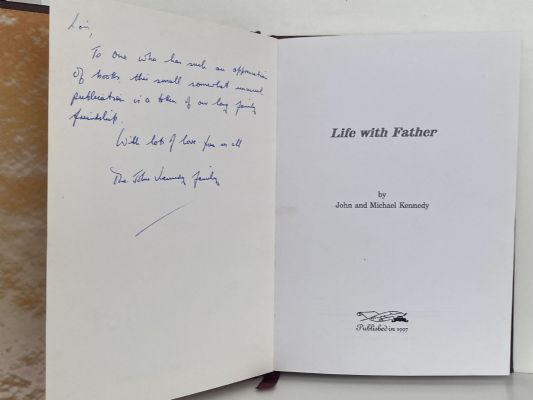 Lois,
To one who has such an appreciation
of books this small somewhat unusual
publication is a token of our long family
friendship.
With lots of love from us all
The John Kennedy family
Life with Father
by
John and Michael Kennedy
Published in 1997